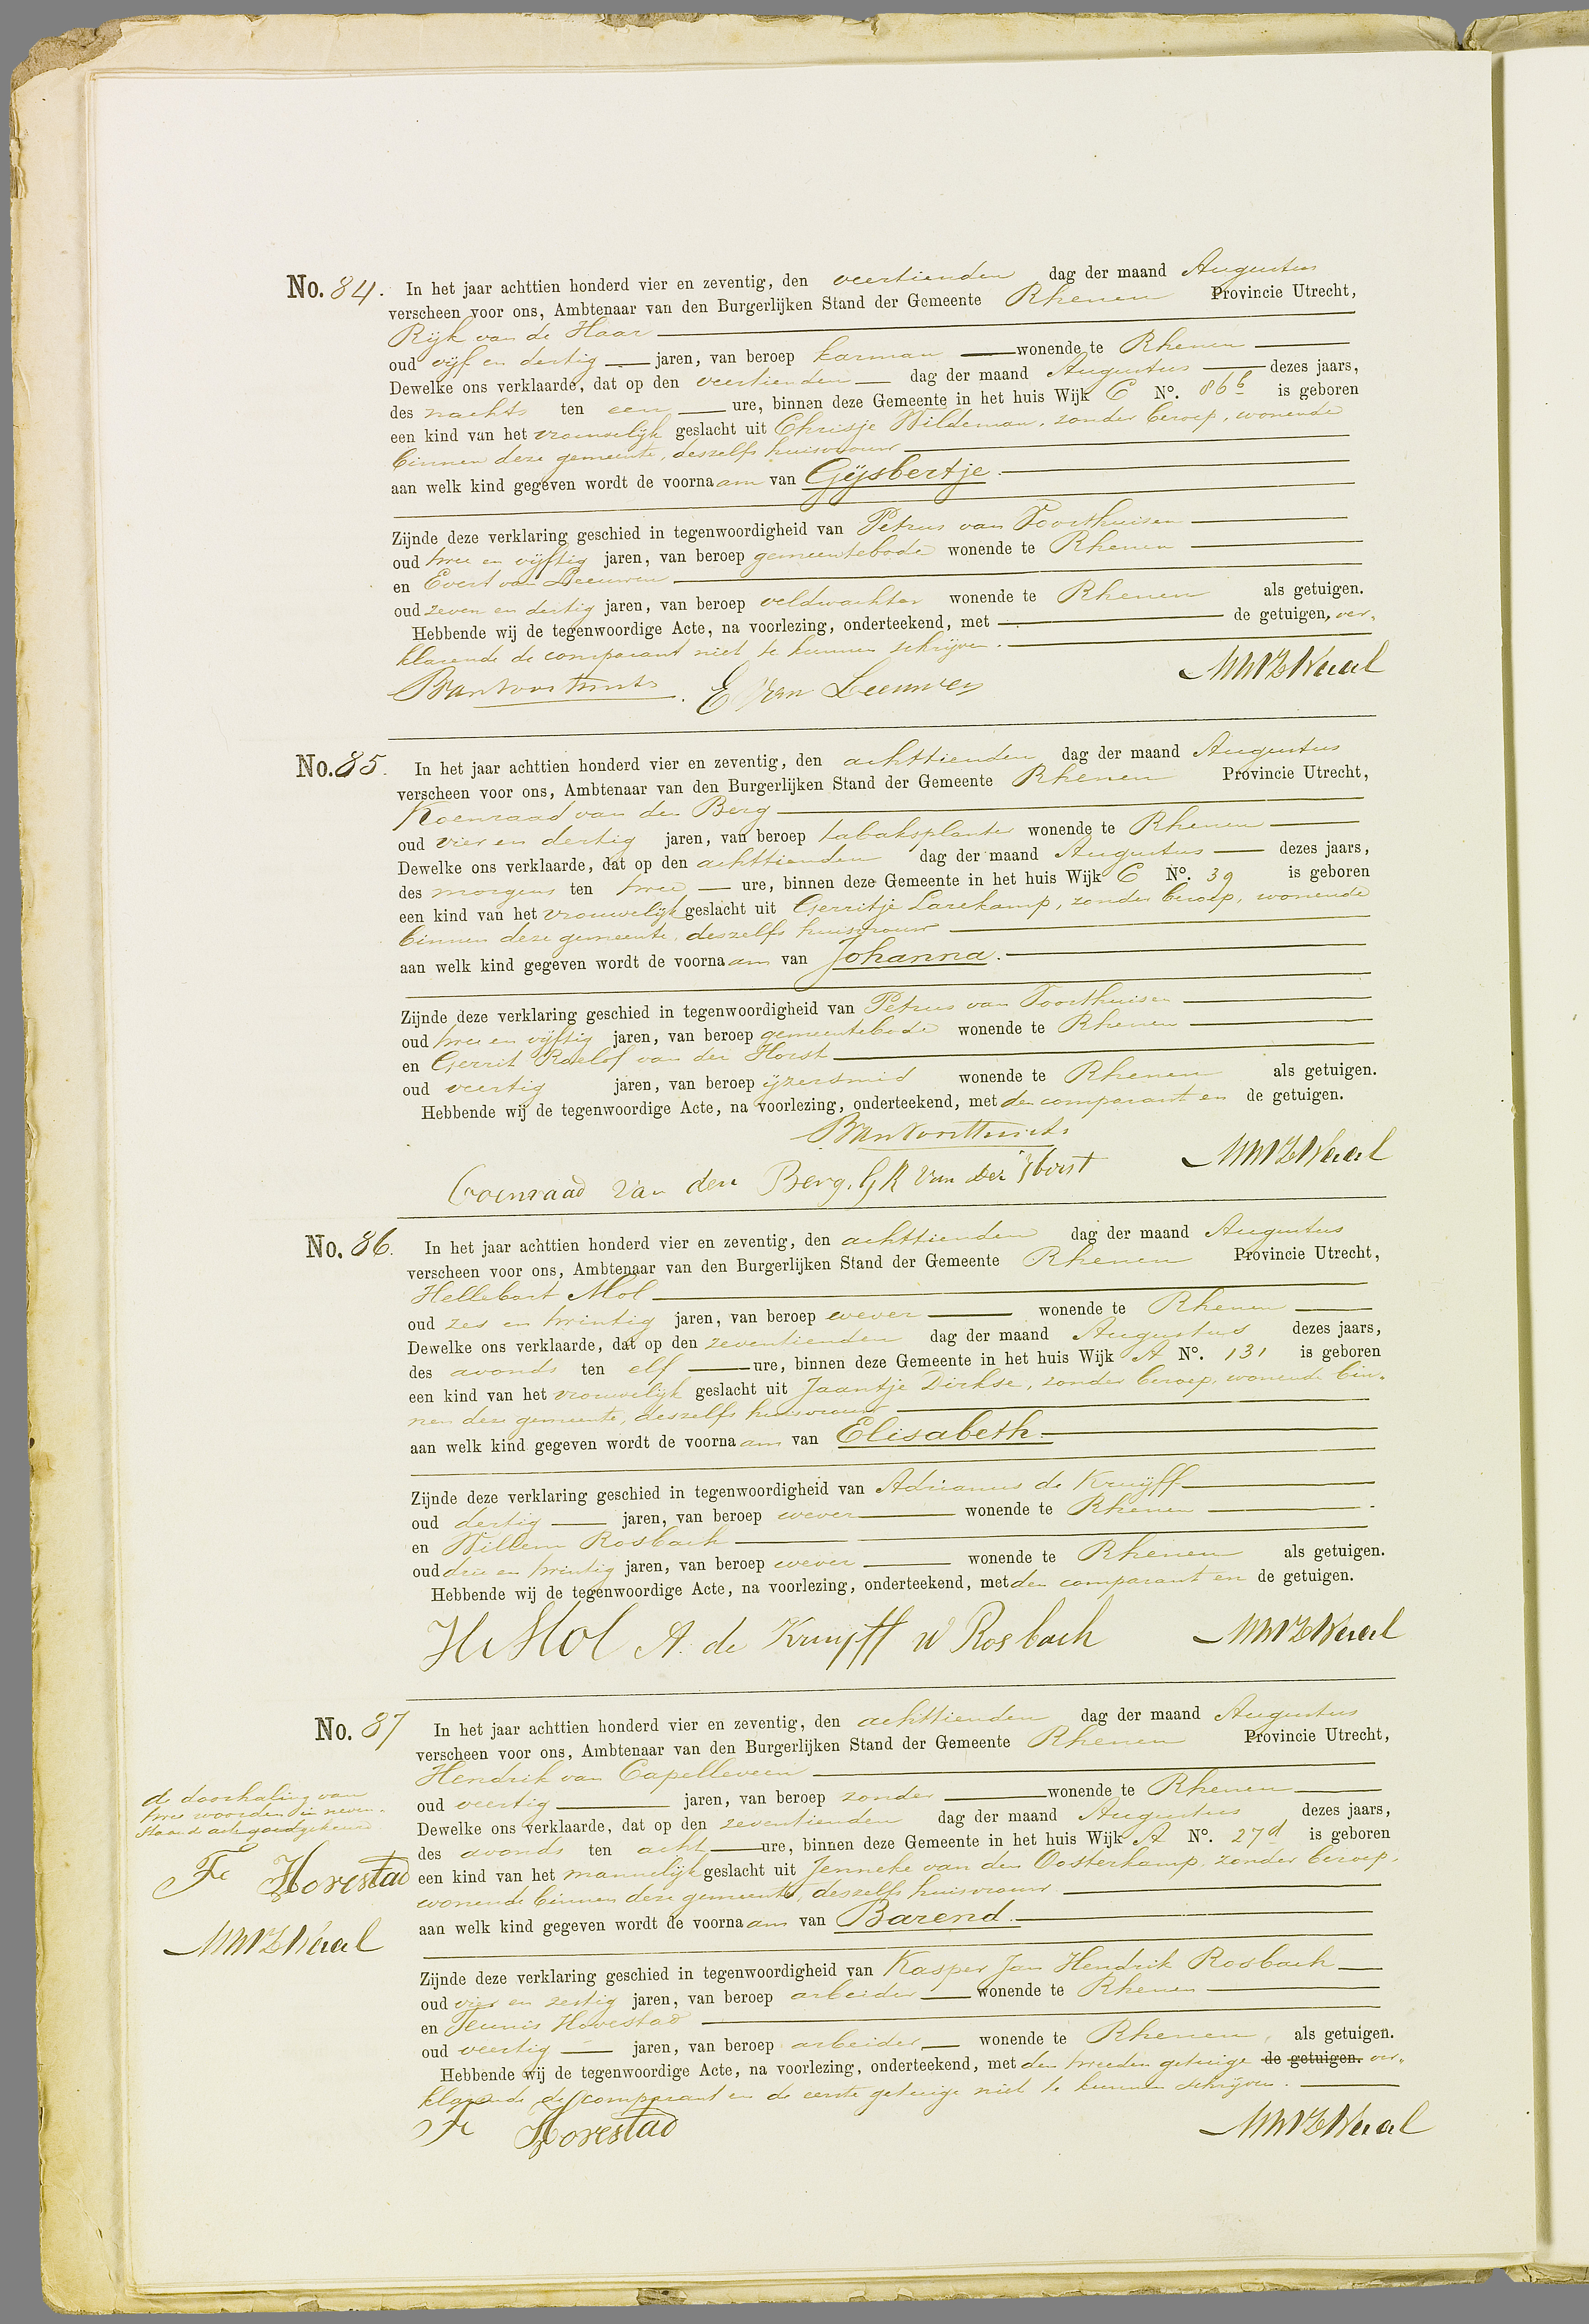 No. 84. In het jaar achttien honderd vier en zeventig, den veertienden dag der maand Augustus
verscheen voor ons, Ambtenaar van den Burgerlijken Stand der Gemeente Rhenen Provincie Utrecht,
Rijk van de Haar
oud vijf en dertig jaren, van beroep karman wonende te Rhenen
Dewelke ons verklaarde, dat op den veertienden dag der maand Augustus dezes jaars,
des nachts ten een ure, binnen deze Gemeente in het huis Wijk C No. 86b is geboren
een kind van het vrouwelijk geslacht uit Chrisje Wildeman, zonder beroep, wonende
binnen deze gemeente, deszelfs huisvrouw
aan welk kind gegeven wordt de voornaam van Gijsbertje.
Zijnde deze verklaring geschied in tegenwoordigheid van Petrus van Voorthuisen
oud twee en vijftig jaren, van beroep gemeentebode wonende te Rhenen
en Evert van Leeuwen
oud zeven en dertig jaren, van beroep veldwachter wonende te Rhenen als getuigen.
Hebbende wij de tegenwoordige Acte, na voorlezing, onderteekend, met de getuigen, ver-
klarende de comparant niet te kunnen schrijven.
E van Leeuwen
No. 85. In het jaar achttien honderd vier en zeventig, den achttienden dag der maand Augustus
verscheen voor ons, Ambtenaar van den Burgerlijken Stand der Gemeente Rhenen Provincie Utrecht,
Koenraad van den Berg
oud vier en dertig jaren, van beroep tabaksplanter wonende te Rhenen
Dewelke ons verklaarde, dat op den achttienden dag der maand Augustus dezes jaars,
des morgens ten twee ure, binnen deze Gemeente in het huis Wijk C No. 39 is geboren
een kind van het vrouwelijk geslacht uit Gerritje Larekamp, zonder beroep, wonende
binnen deze gemeente, deszelfs huisvrouw
aan welk kind gegeven wordt de voornaam van Johanna.
Zijnde deze verklaring geschied in tegenwoordigheid van Petrus van Voorthuisen
oud twee en vijftig jaren, van beroep gemeentebode wonende te Rhenen
en Gerrit Roelof van der Horst
oud veertig jaren, van beroep ijzersmid wonende te Rhenen als getuigen.
Hebbende wij de tegenwoordige Acte, na voorlezing, onderteekend, met den comparant en de getuigen.
Coenraad van den Berg. G R van Der Horst
No. 86. In het jaar achttien honderd vier en zeventig, den achttienden dag der maand Augustus
verscheen voor ons, Ambtenaar van den Burgerlijken Stand der Gemeente Rhenen Provincie Utrecht,
Hellebart Mol
oud zes en twintig jaren, van beroep wever wonende te Rhenen
Dewelke ons verklaarde, dat op den zeventienden dag der maand Augustus dezes jaars,
des avonds ten elf ure, binnen deze Gemeente in het huis Wijk A No. 131 is geboren
een kind van het vrouwelijk geslacht uit Jaantje Dirkse, zonder beroep, wonende bin-
nen deze gemeente, deszelfs huisvrouw
aan welk kind gegeven wordt de voornaam van Elisabeth.
Zijnde deze verklaring geschied in tegenwoordigheid van Adrianus de Kruijff
oud dertig jaren, van beroep wever wonende te Rhenen
en Willem Rosbach
oud drie en twintig jaren, van beroep wever wonende te Rhenen als getuigen.
Hebbende wij de tegenwoordige Acte, na voorlezing, onderteekend, met den comparant en de getuigen.
H Mol A. de Kruijff W Rosbach
No. 87 In het jaar achttien honderd vier en zeventig, den achttienden dag der maand Augustus
verscheen voor ons, Ambtenaar van den Burgerlijken Stand der Gemeente Rhenen Provincie Utrecht,
Hendrik van Capelleveen
oud veertig jaren, van beroep zonder wonende te Rhenen
Dewelke ons verklaarde, dat op den zeventienden dag der maand Augustus dezes jaars,
des avonds ten acht ure, binnen deze Gemeente in het huis Wijk A No. 27d is geboren
een kind van het mannelijk geslacht uit Jenneke van den Oosterkamp, zonder beroep,
wonende binnen deze gemeente, deszelfs huisvrouw
aan welk kind gegeven wordt de voornaam van Barend.
Zijnde deze verklaring geschied in tegenwoordigheid van Kasper Jan Hendrik Rosbach
oud vier en zestig jaren, van beroep arbeider wonende te Rhenen
en Teunis Hovestad
oud veertig jaren, van beroep arbeider wonende te Rhenen, als getuigen.
Hebbende wij de tegenwoordige Acte, na voorlezing, onderteekend, met den tweeden getuige de getuigen. ver-
klarende de comparant en de eerste getuige niet te kunnen schrijven.
Hovestad
de doorhaling van
twee woorden in neven-
staande acte goedgekeurd
Hovestad